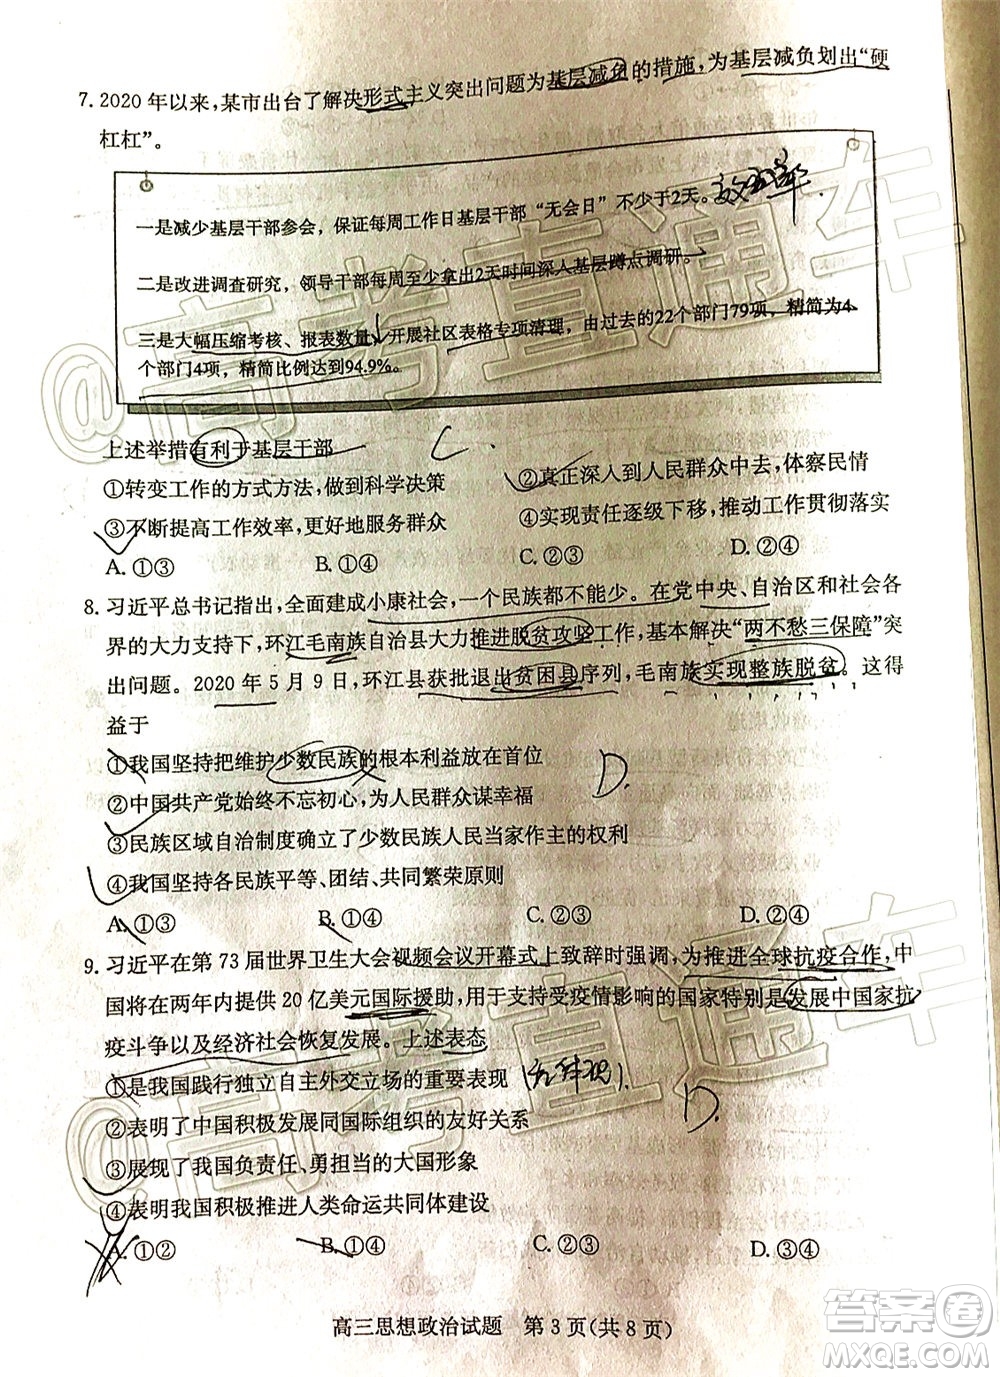 7. 2020年以来,某市出台了解决形式主义突出问题为基层减负的措施,为基层减负划出“硬
杠杠”。
一是减少基层干部参会，保证每周工作日基层干部“无会日”不少于2天。
二是改进调查研究，领导干部每周至少拿出2天时间深入基层蹲点调研。
三是大幅压缩考核、报表数量，开展社区表格专项清理，由过去的22个部门79项，精简为4
个部门4项，精简比例达到94.9%。
上述举措有利于基层干部 C.
①转变工作的方式方法,做到科学决策 ②真正深入到人民群众中去,体察民情
③不断提高工作效率,更好地服务群众 ④实现责任逐级下移,推动工作贯彻落实
A. ①③ B. ①④ C. ②③ D. ②④
8. 习近平总书记指出,全面建成小康社会,一个民族都不能少。在党中央、自治区和社会各
界的大力支持下,环江毛南族自治县大力推进脱贫攻坚工作,基本解决“两不愁三保障”突
出问题。2020年5月9日,环江县获批退出贫困县序列,毛南族实现整族脱贫。这得
益于
①我国坚持把维护少数民族的根本利益放在首位 D.
②中国共产党始终不忘初心,为人民群众谋幸福
③民族区域自治制度确立了少数民族人民当家作主的权利
④我国坚持各民族平等、团结、共同繁荣原则
A. ①③ B. ①④ C. ②③ D. ②④
9. 习近平在第73届世界卫生大会视频会议开幕式上致辞时强调,为推进全球抗疫合作,中
国将在两年内提供20亿美元国际援助,用于支持受疫情影响的国家特别是发展中国家抗
疫斗争以及经济社会恢复发展。上述表态
①是我国践行独立自主外交立场的重要表现
②表明了中国积极发展同国际组织的友好关系 D.
③展现了我国负责任、勇担当的大国形象
④表明我国积极推进人类命运共同体建设
A. ①② B. ①④ C. ②③ D. ③④
高三思想政治试题 第3页(共8页)
@高考直通车
@高考直通车
答案圈
MXQE.COM